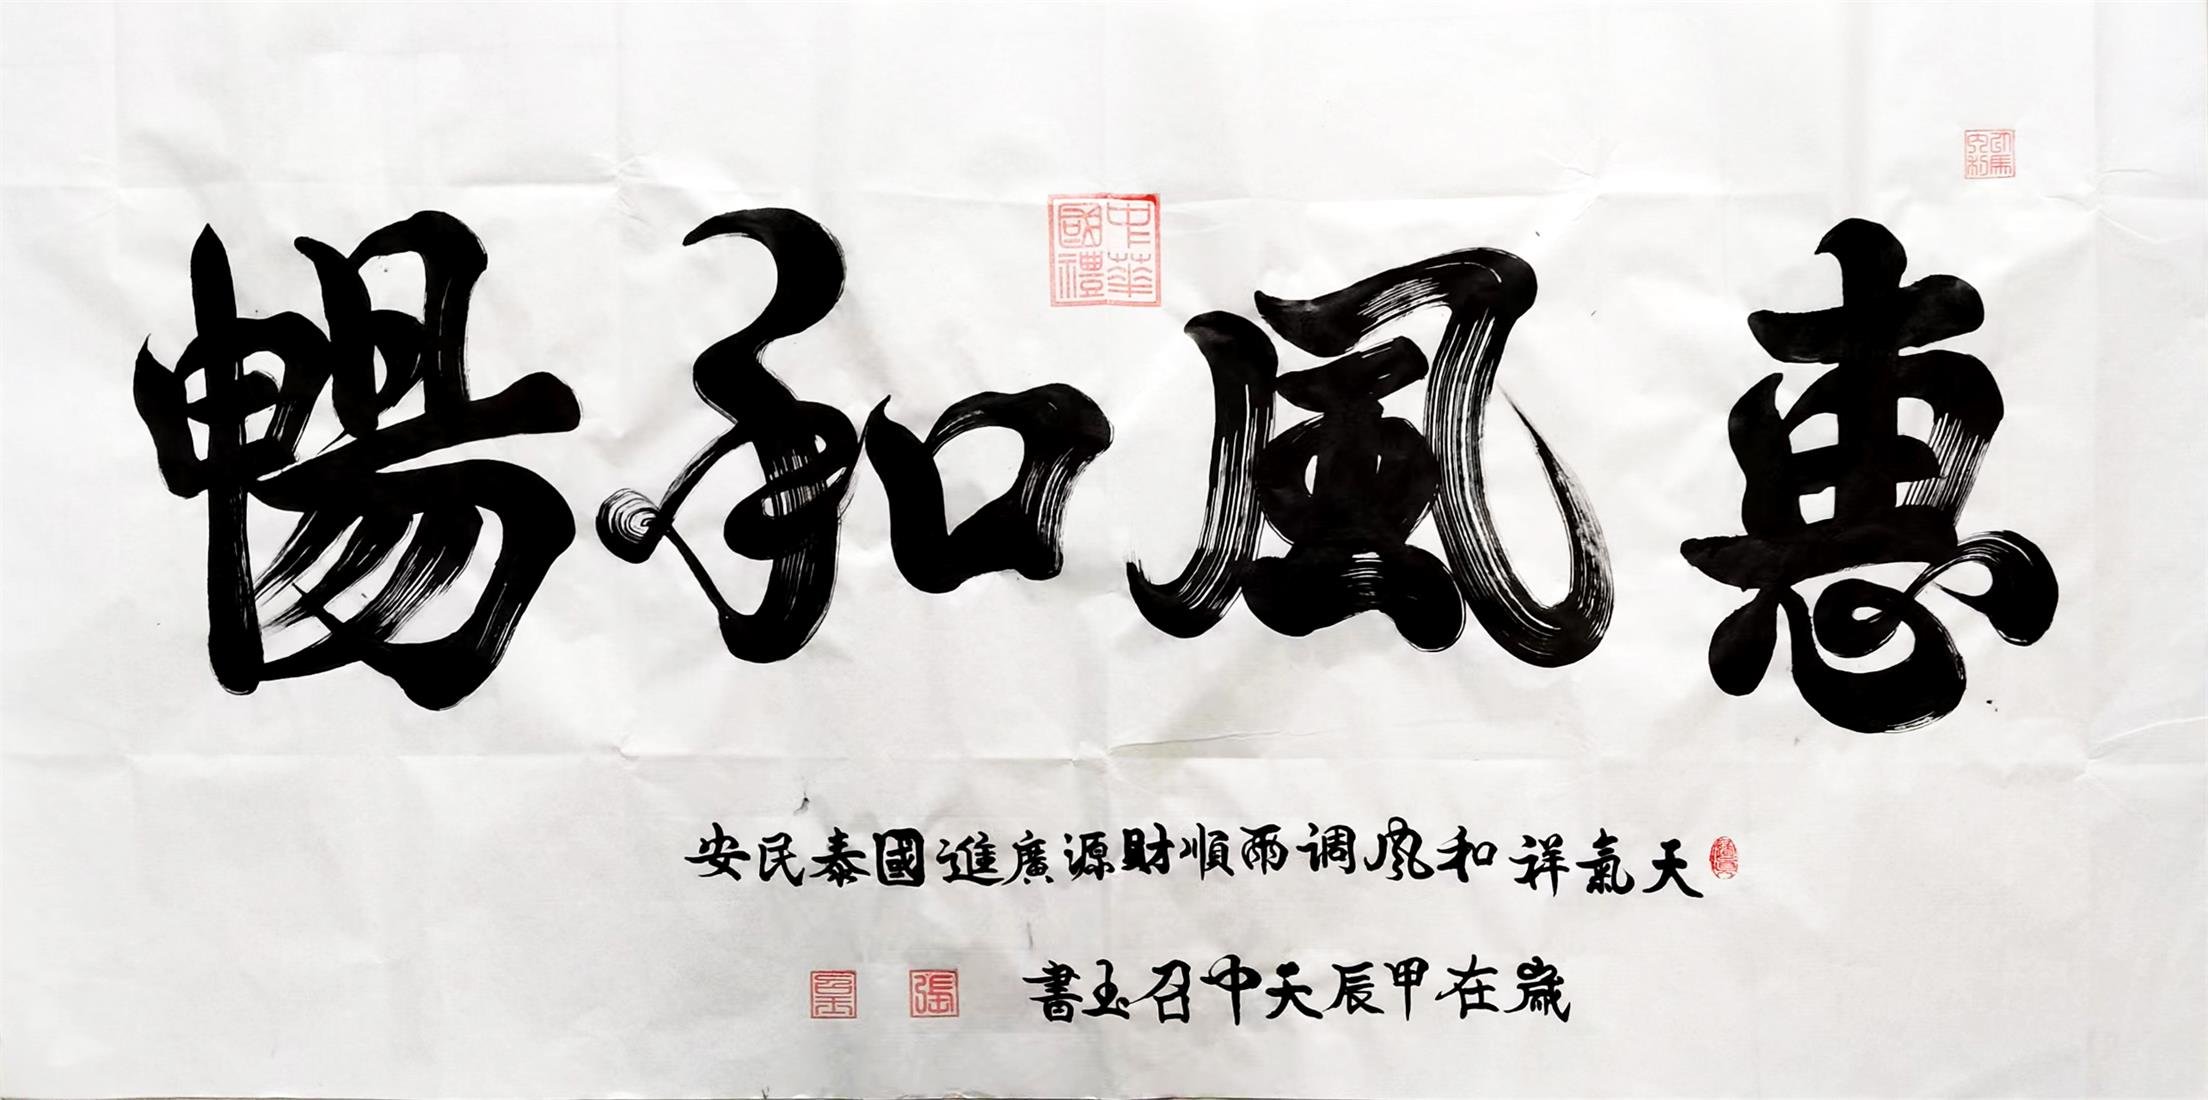 惠風和暢
中華國禮
天氣祥和風调雨順財源廣進國泰民安
歲在甲辰天中召玉書
張
召玉